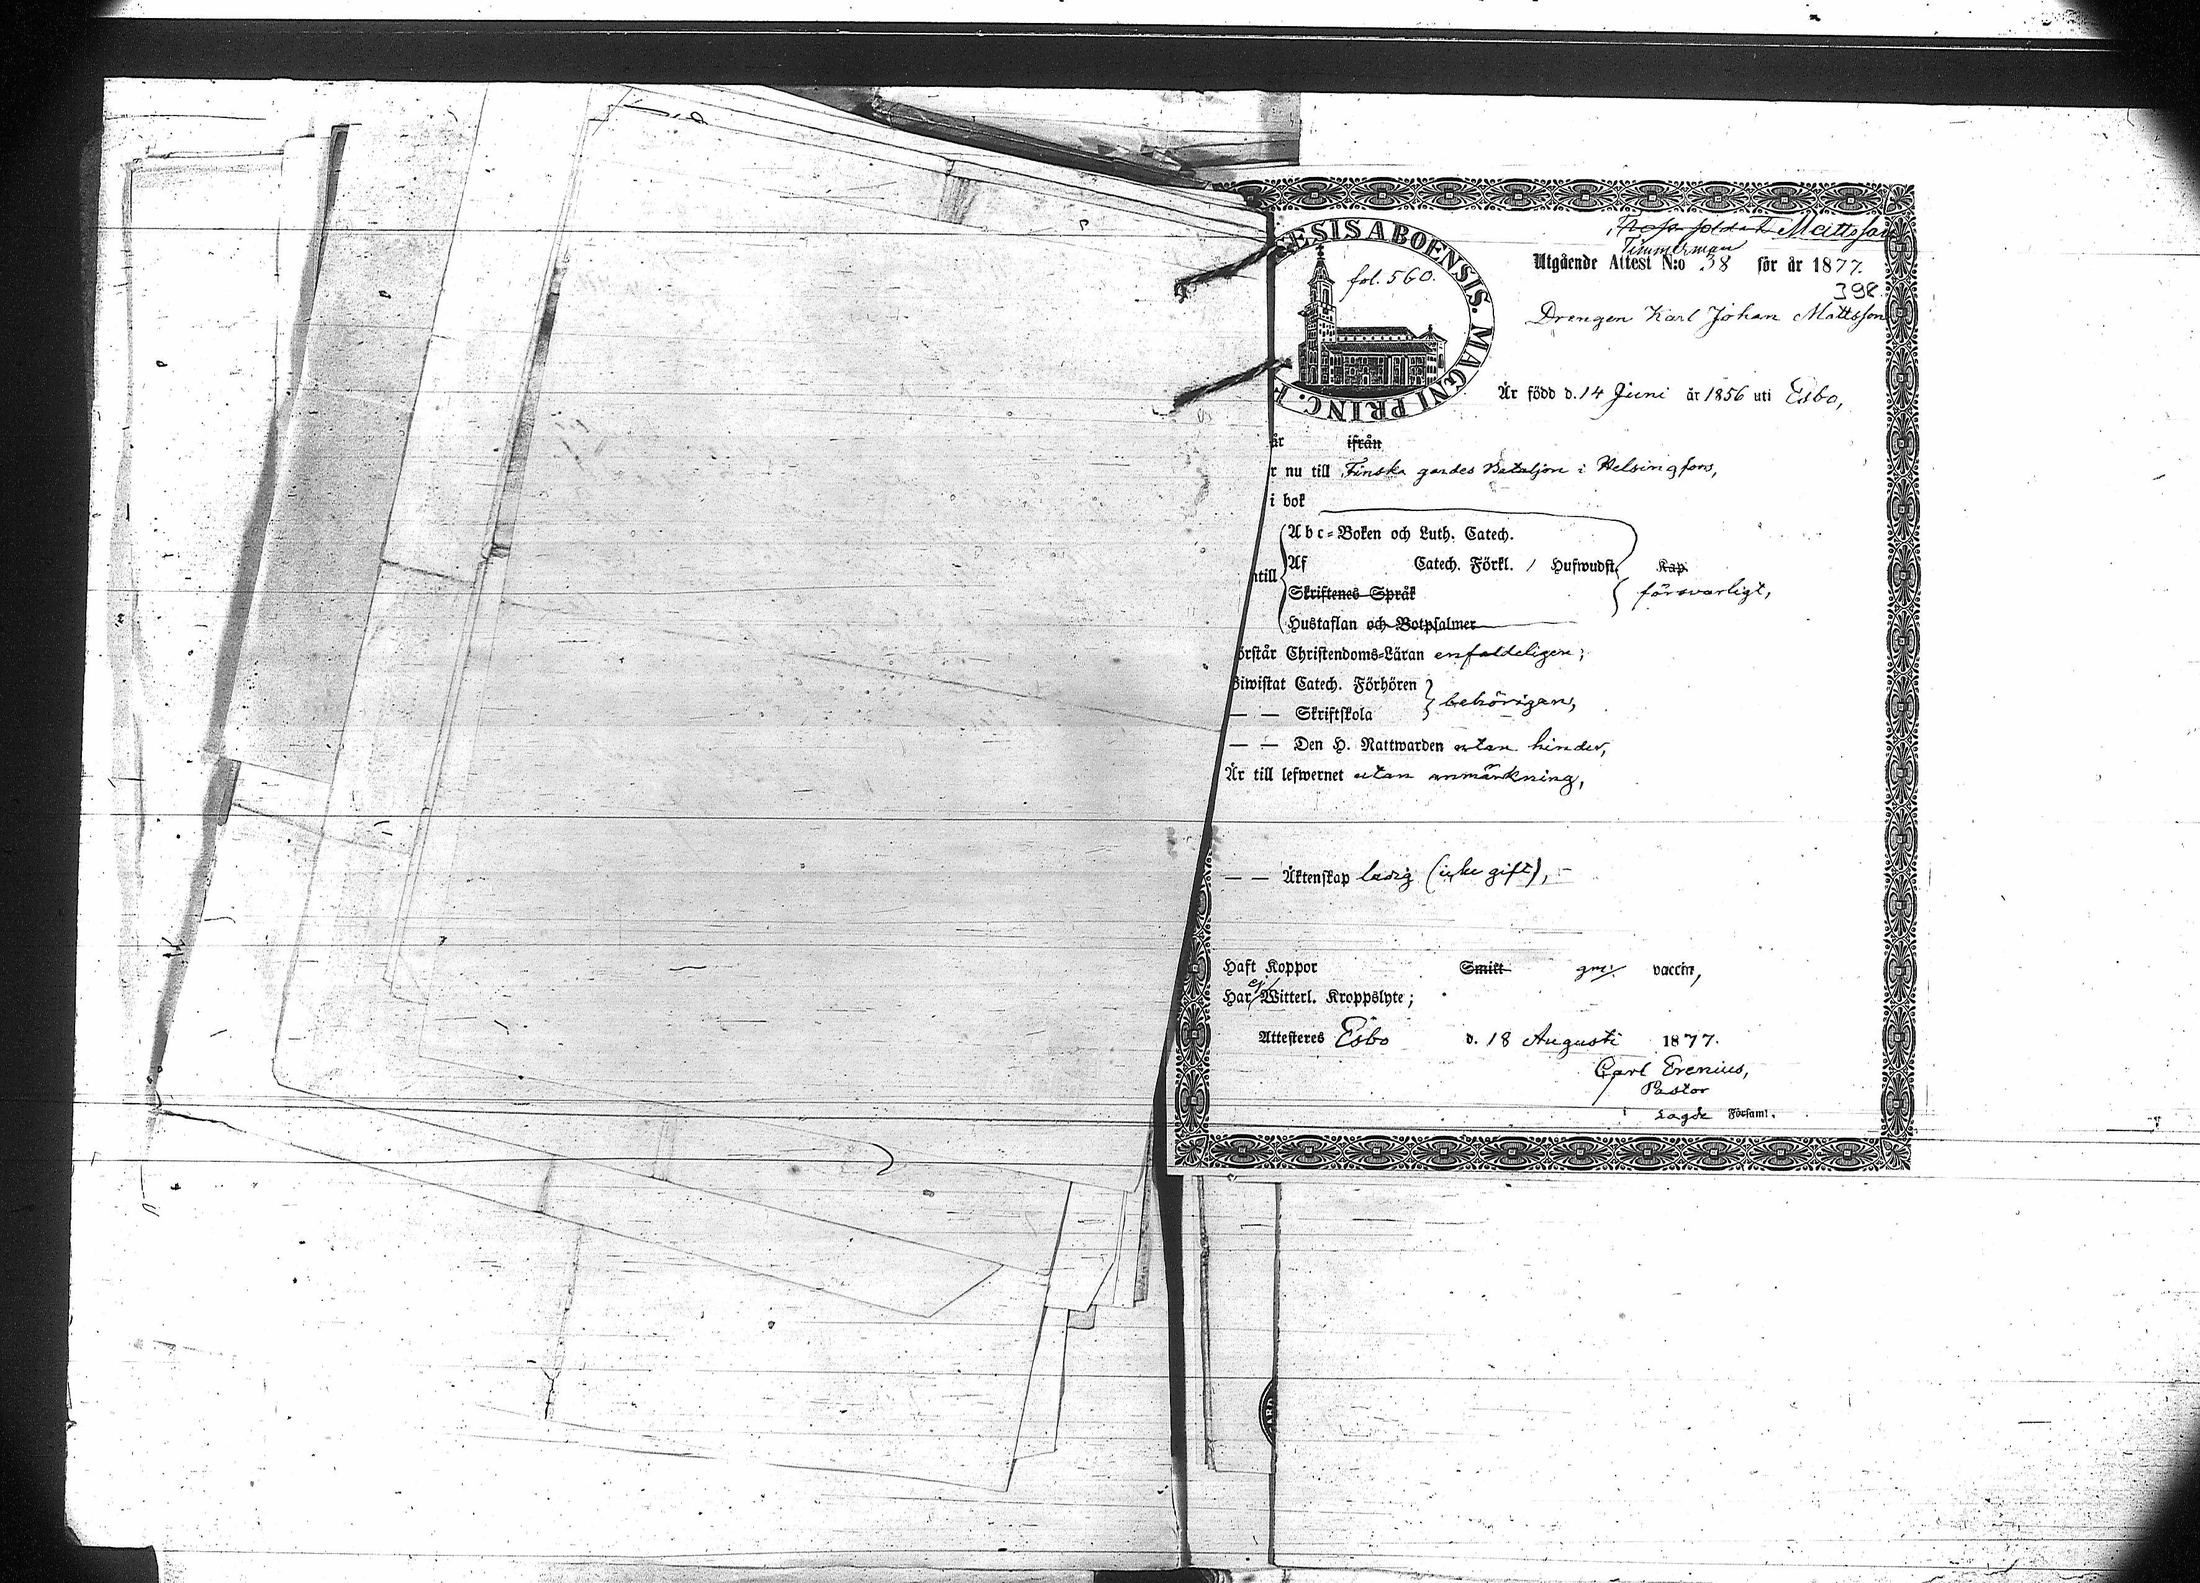 Mattsson
Timmerman
ESIS ABOENSIS. MAGNI PRINC. F
fol. 560.
Utgående Attest N:o 38 för år 1877.
398.
Drengen Karl Johan Mattsson
Är född d. 14 Juni år 1856 uti Esbo,
år ifrån
r nu till Finska gardes Bataljon i Helsingfors,
i bok
Abc-Boken och Luth. Catech.
Af Catech. Förkl. / Hufwudst. Kap.
ntill
Skriftenes Språk försvarligt,
Hustaflan och Botpsalmer
örstår Christendoms-Läran enfaldeligen;
Biwistat Catech. Förhören
behörigen,
— — Skriftskola
— — Den H. Nattwarden utan hinder,
Är till lefwernet utan anmärkning,
— — Äktenskap ledig (icke gift), –
Haft Koppor Smitt gm. vaccin,
Har ej Witterl. Kroppslyte;
Attesteres Esbo d. 18 Augusti 1877.
Carl Erenius,
Pastor
Sagde Församl.